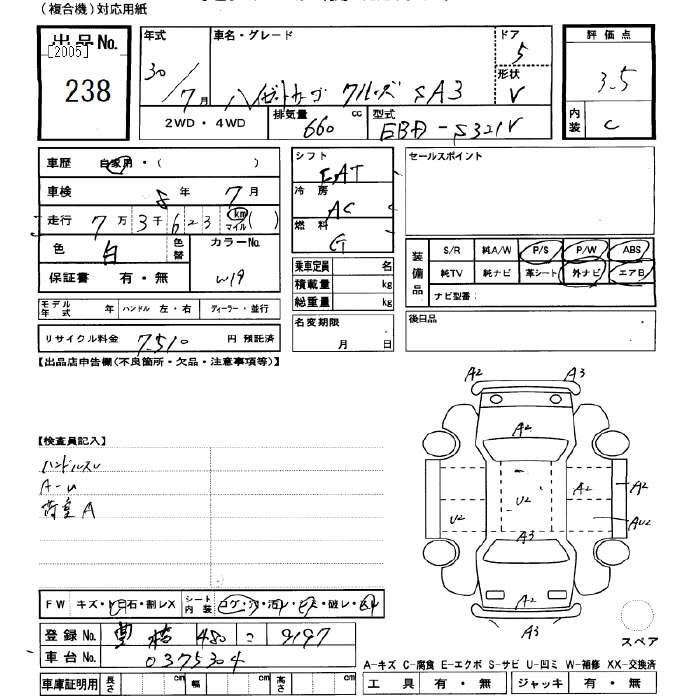 (複合機)対応用紙
出品No.
[2005]
238
年式
30/7月
車名・グレード
ハイゼットカーゴ クルーズ SA3
ドア
5
形状
V
2WD・4WD
排気量
660 cc
型式
EBD-S321V
評価点
3.5
内装
C
車歴
自家用・( )
車検
8年 7月
走行
7万3千623 km マイル ( )
色
白
色替
カラーNo.
W19
保証書 有・無
モデル年式 年 ハンドル 左・右 ディーラー・並行
リサイクル料金 7,510 円 預託済
シフト
FAT
冷房
AC
燃料
G
乗車定員 名
積載量 kg
総重量 kg
名変期限
月 日
セールスポイント
装備品
S/R 純A/W P/S P/W ABS
純TV 純ナビ 革シート 外ナビ エアB
ナビ型番:
後日品
【出品店申告欄(不良箇所・欠品・注意事項等)】
【検査員記入】
ハンドルスレ
A-U
荷室A
A2 A3
A2
U2
A2
A2
U2
AU2
A3
A2
A3
スペア
FW キズ・ト日石・割レX
シート内装 コゲ・穴・汚レ・破レ・
登録No. 480 こ 9197
車台No. 0375304
車庫証明用 長さ cm 幅 cm 高さ cm
A-キズ C-腐食 E-エクボ S-サビ U-凹ミ W-補修 XX-交換済
工具 有・無 ジャッキ 有・無